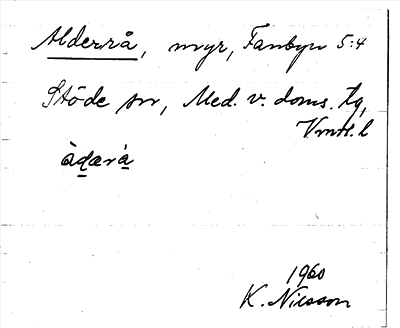 Alderrå, myr, Fanbyn 5:4
Stöde sn, Med. v. doms. tg,
Vmrl. l
àd̲ærá̲
1960
K. Nilsson